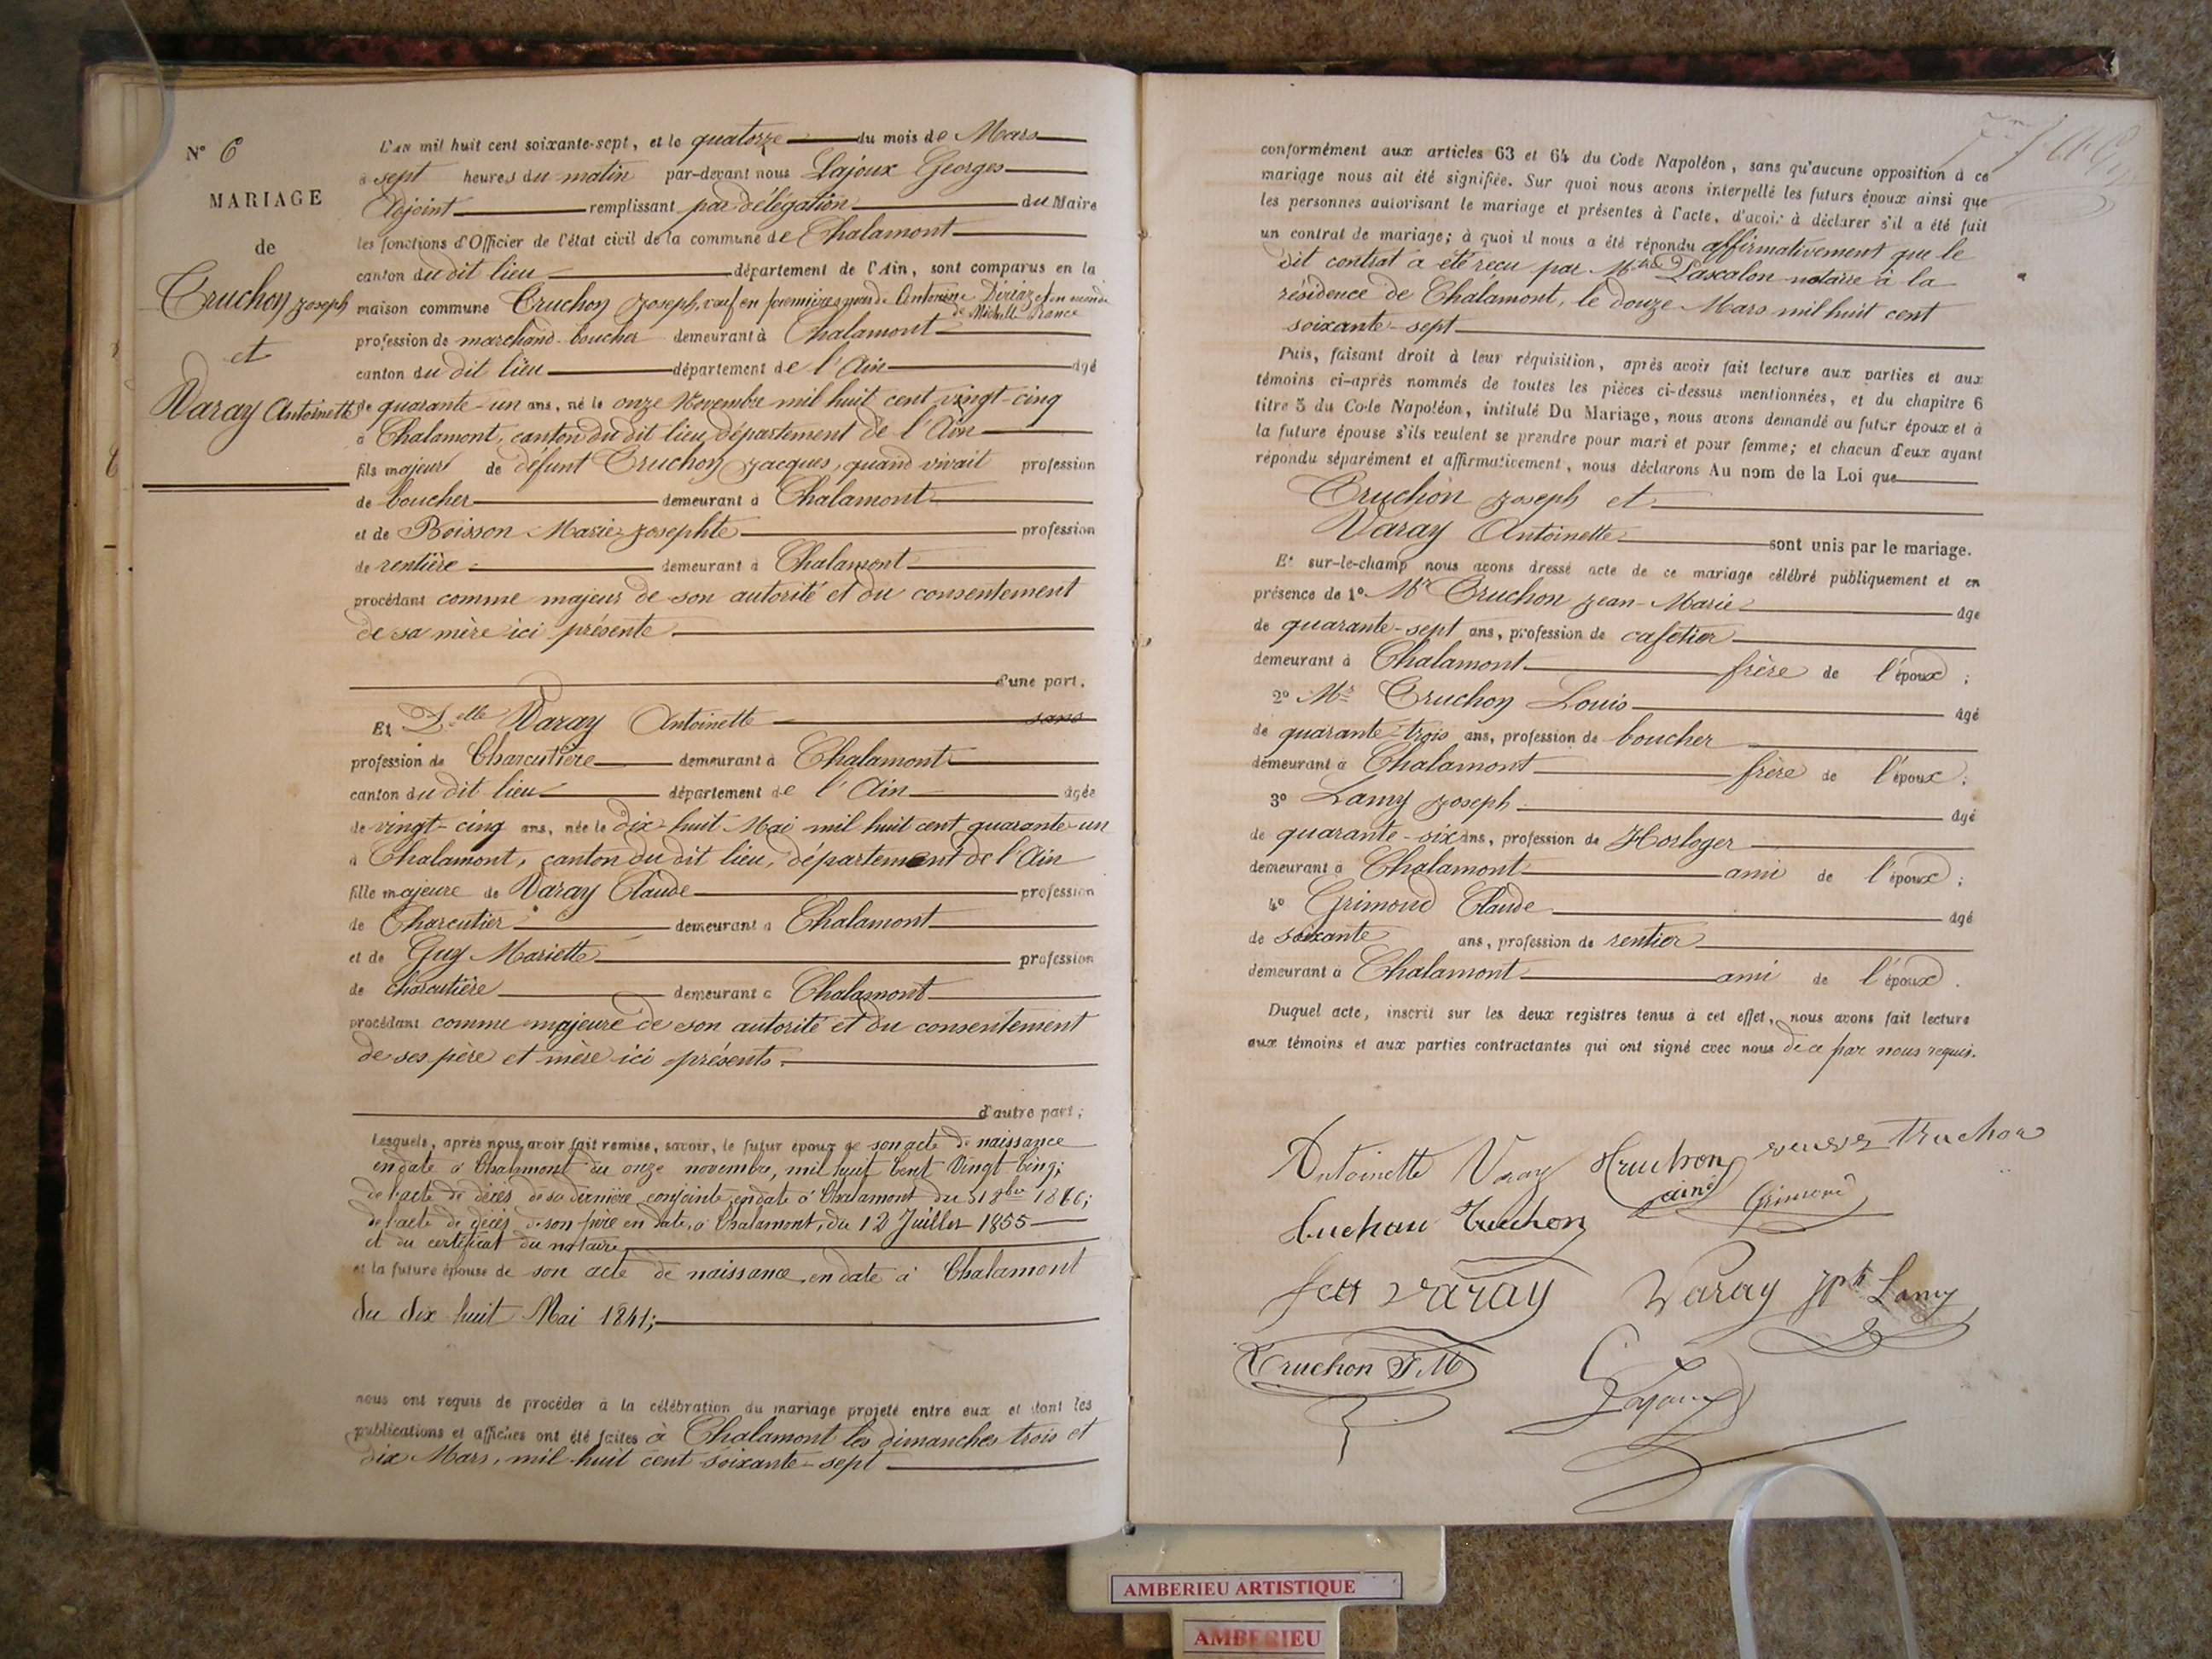 N° 6
MARIAGE
de
Truchon Joseph
et
Varay Antoinette
L'an mil huit cent soixante-sept, et le quatorze du mois de Mars
à sept heures du matin par-devant nous Lajoux Georges
Adjoint remplissant par délégation du Maire
les fonctions d'Officier de l'état civil de la commune de Chalamont
canton du dit lieu département de l'Ain, sont comparus en la
maison commune Truchon Joseph, veuf en premières noces de Antonine et en seconde
de Michelle
profession de marchand-boucher demeurant à Chalamont
canton du dit lieu département de l'Ain âgé
de quarante-un ans, né le onze Novembre mil huit cent vingt-cinq
à Chalamont, canton du dit lieu, département de l'Ain
fils majeur de défunt Truchon Jacques, quand vivait profession
de boucher demeurant à Chalamont
et de Boisson Marie-Josephte profession
de rentière demeurant à Chalamont
procédant comme majeur de son autorité et du consentement
de sa mère ici présente.
d'une part.
Et Delle Varay Antoinette sans
profession de Charcutière demeurant à Chalamont
canton du dit lieu département de l'Ain âgée
de vingt-cinq ans, née le dix-huit Mai mil huit cent quarante-un
à Chalamont, canton du dit lieu, département de l'Ain
fille majeure de Varay Claude profession
de Charcutier demeurant à Chalamont
et de Guy Mariette profession
de charcutière demeurant à Chalamont
procédant comme majeure de son autorité et du consentement
de ses père et mère ici présents.
d'autre part;
Lesquels, après nous avoir fait remise, savoir, le futur époux de son acte de naissance
en date à Chalamont du onze novembre, mil huit Cent Vingt Cinq;
de l'acte de décès de sa dernière conjointe, en date à Chalamont du
de l'acte de décès de son père en date, à Chalamont, du 12 Juillet 1855
et du certificat du notaire
et la future épouse de son acte de naissance, en date à Chalamont
du dix huit Mai 1841;
nous ont requis de procéder à la célébration du mariage projeté entre eux et dont les
publications et affiches ont été faites à Chalamont les dimanches trois et
dix Mars, mil-huit cent soixante-sept
conformément aux articles 63 et 64 du Code Napoléon, sans qu'aucune opposition à ce
mariage nous ait été signifiée. Sur quoi nous avons interpellé les futurs époux ainsi que
les personnes autorisant le mariage et présentes à l'acte, d'avoir à déclarer s'il a été fait
un contrat de mariage; à quoi il nous a été répondu affirmativement que le
dit contrat a été reçu par Mtre Pascalon notaire à la
résidence de Chalamont, le douze Mars mil huit cent
soixante-sept
Puis, faisant droit à leur réquisition, après avoir fait lecture aux parties et aux
témoins ci-après nommés de toutes les pièces ci-dessus mentionnées, et du chapitre 6
titre 5 du Code Napoléon, intitulé Du Mariage, nous avons demandé au futur époux et à
la future épouse s'ils veulent se prendre pour mari et pour femme; et chacun d'eux ayant
répondu séparément et affirmativement, nous déclarons Au nom de la Loi que
Truchon Joseph et
Varay Antoinette sont unis par le mariage.
Et sur-le-champ nous avons dressé acte de ce mariage célébré publiquement et en
présence de 1° Mr Truchon Jean-Marie âgé
de quarante-sept ans, profession de cafetier
demeurant à Chalamont frère de l'époux;
2° Mr Truchon Louis âgé
de quarante-trois ans, profession de boucher
demeurant à Chalamont frère de l'époux;
3° Lamy Joseph âgé
de quarante-six ans, profession de Horloger
demeurant à Chalamont ami de l'époux;
4° Grimond Claude âgé
de soixante ans, profession de rentier
demeurant à Chalamont ami de l'époux.
Duquel acte, inscrit sur les deux registres tenus à cet effet, nous avons fait lecture
aux témoins et aux parties contractantes qui ont signé avec nous de ce par nous requis.
Antoinette Varay Truchon veuve truchon
ainé Grimond
Truchon
Varay Varay Jph Lamy
Truchon J. M
Lajoux
AMBERIEU ARTISTIQUE
AMBERIEU